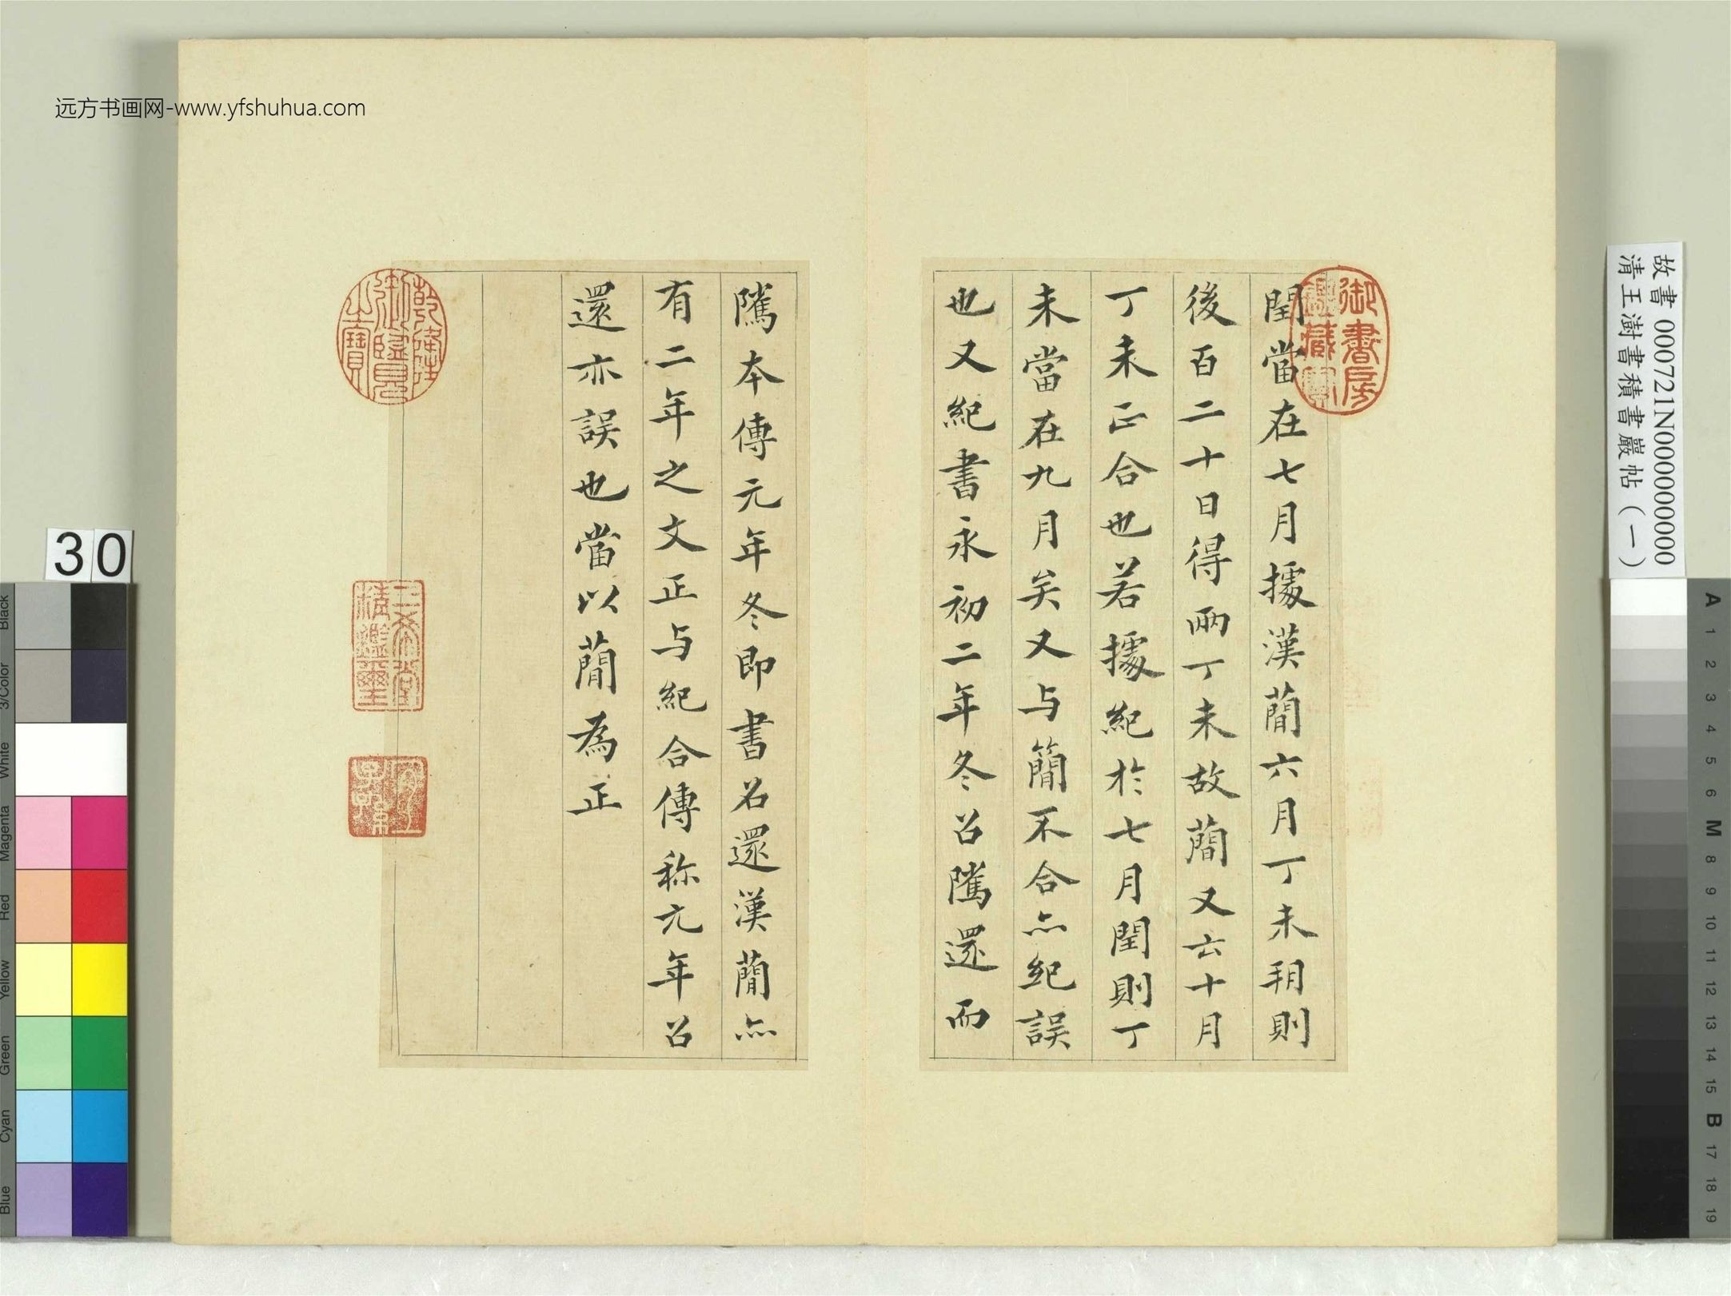 远方书画网-www.yfshuhua.com
閏當在七月據漢簡六月丁未朔則
後百二十日得兩丁未故簡又云十月
丁未正合也若據紀於七月閏則丁
未當在九月矣又与簡不合亦紀誤
也又紀書永初二年冬召隲還而
隲本傳元年冬即書召還漢簡亦
有二年之文正与紀合傳称元年召
還亦誤也當以簡為正
御書房鑑藏寶
乾隆御覽之寶
三希堂精鑑璽
宜子孫
故書 000721N000000000
清王澍書積書巖帖(一)
30
Black
3/Color
White
Magenta
Red
Yellow
Green
Cyan
Blue
A
1
2
3
4
5
6
M
8
9
10
11
12
13
14
15
B
17
18
19